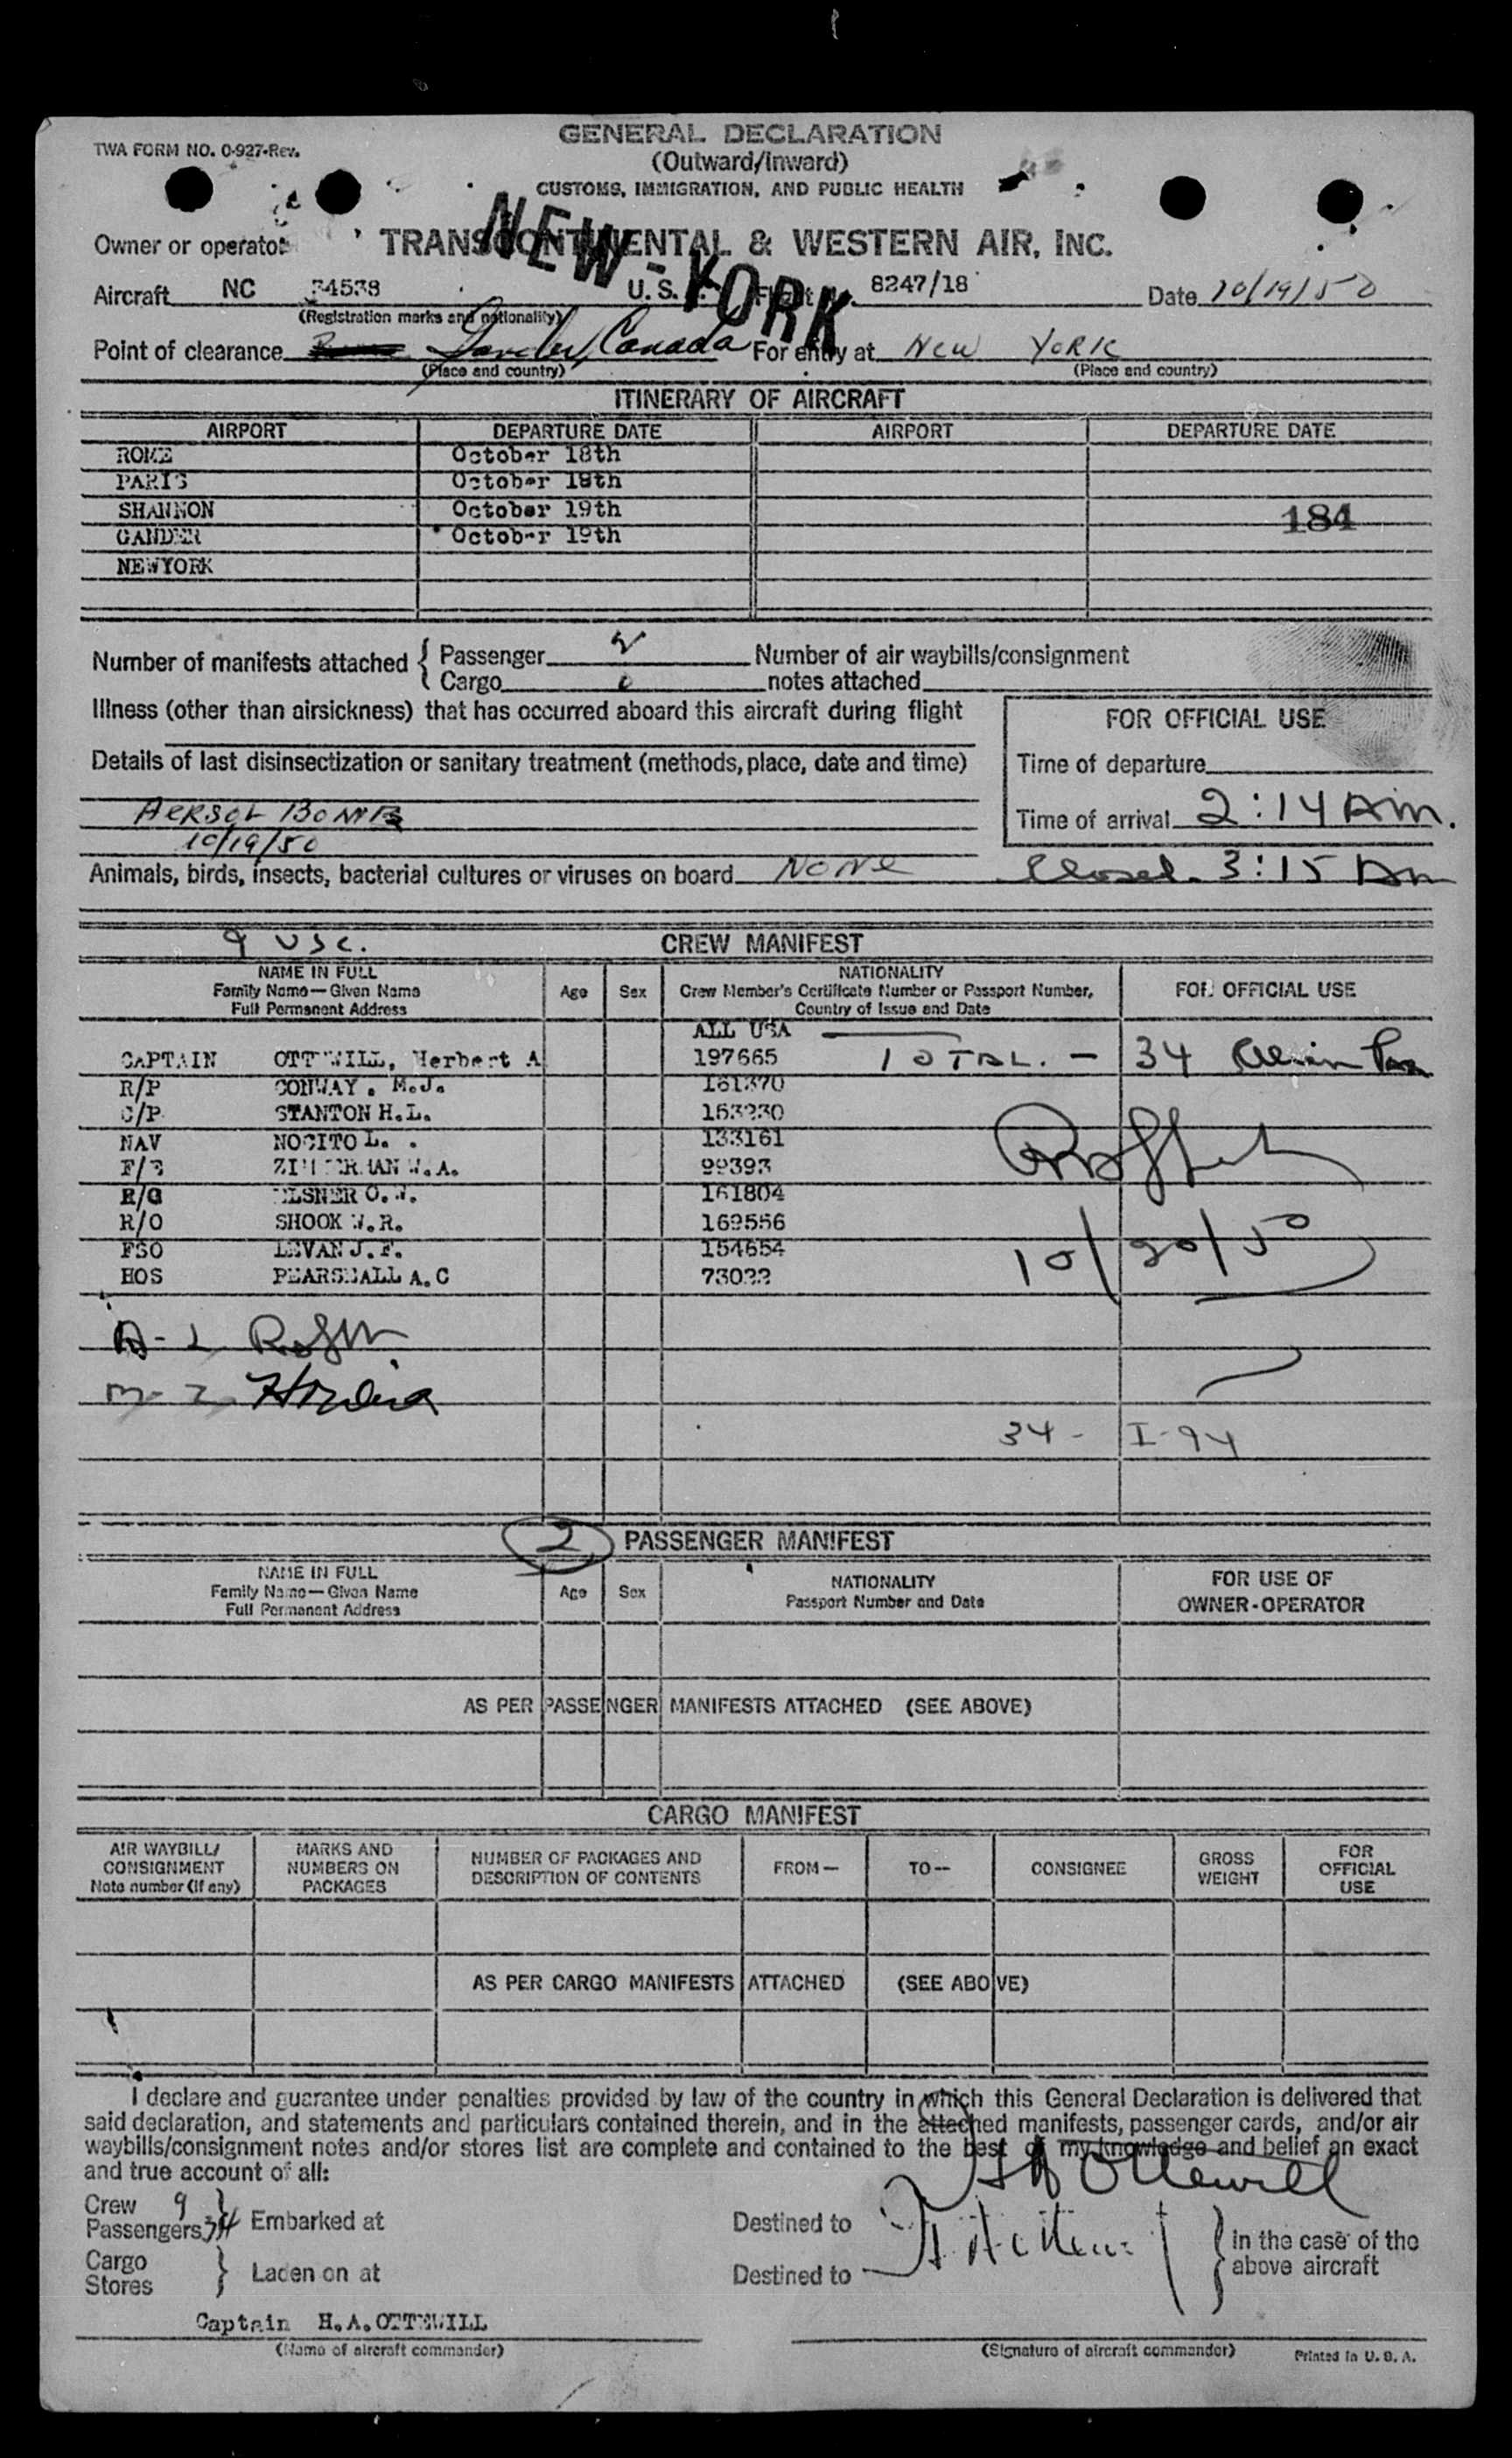 GENERAL DECLARATION
TWA FORM NO. 0-927-Rev.
(Outward/Inward)
CUSTOMS, IMMIGRATION, AND PUBLIC HEALTH
NEW-YORK
Owner or operator TRANSCONTINENTAL & WESTERN AIR, INC.
Aircraft NC 34538 U.S. 8247/18 Date 10/19/50
(Registration marks and nationality)
Point of clearance Gander, Canada For entry at NEW YORK
(Place and country) (Place and country)
ITINERARY OF AIRCRAFT
AIRPORT DEPARTURE DATE AIRPORT DEPARTURE DATE
ROME October 18th
PARIS October 18th
SHANNON October 19th 184
GANDER October 19th
NEWYORK
Number of manifests attached { Passenger 2 Number of air waybills/consignment
Cargo 0 notes attached
Illness (other than airsickness) that has occurred aboard this aircraft during flight
FOR OFFICIAL USE
Details of last disinsectization or sanitary treatment (methods, place, date and time)
Time of departure
AERSOL BOMB
Time of arrival 2:14 AM.
10/19/50
Animals, birds, insects, bacterial cultures or viruses on board NONE Closed. 3:15 AM
9 USC. CREW MANIFEST
NAME IN FULL NATIONALITY
Family Name—Given Name Age Sex Crew Member's Certificate Number or Passport Number, FOR OFFICIAL USE
Full Permanent Address Country of Issue and Date
ALL USA
CAPTAIN OTTEWILL, Herbert A 197665 TOTAL. - 34 Alien Pass
R/P CONWAY. M.J. 161370
C/P STANTON H.L. 153230
NAV NOCITO L. . 133161
F/E ZIMMERMAN W.A. 99393
R/O ELSNER O.W. 161804
R/O SHOOK W.R. 169556
FSO LEVAN J.F. 154654
HOS PEARSEALL A.C 73022
10/20/50
34 - I-94
2 PASSENGER MANIFEST
NAME IN FULL NATIONALITY FOR USE OF
Family Name—Given Name Age Sex Passport Number and Date OWNER-OPERATOR
Full Permanent Address
AS PER PASSENGER MANIFESTS ATTACHED (SEE ABOVE)
CARGO MANIFEST
AIR WAYBILL/ MARKS AND NUMBER OF PACKAGES AND FROM— TO— CONSIGNEE GROSS FOR
CONSIGNMENT NUMBERS ON DESCRIPTION OF CONTENTS WEIGHT OFFICIAL
Note number (if any) PACKAGES USE
AS PER CARGO MANIFESTS ATTACHED (SEE ABOVE)
I declare and guarantee under penalties provided by law of the country in which this General Declaration is delivered that
said declaration, and statements and particulars contained therein, and in the attached manifests, passenger cards, and/or air
waybills/consignment notes and/or stores list are complete and contained to the best of my knowledge and belief an exact
and true account of all:
H A Ottewill
Crew 9
Passengers 34 } Embarked at Destined to } in the case of the
Cargo
Stores } Laden on at Destined to above aircraft
Captain H.A.OTTEWILL
(Name of aircraft commander) (Signature of aircraft commander) Printed in U. S. A.